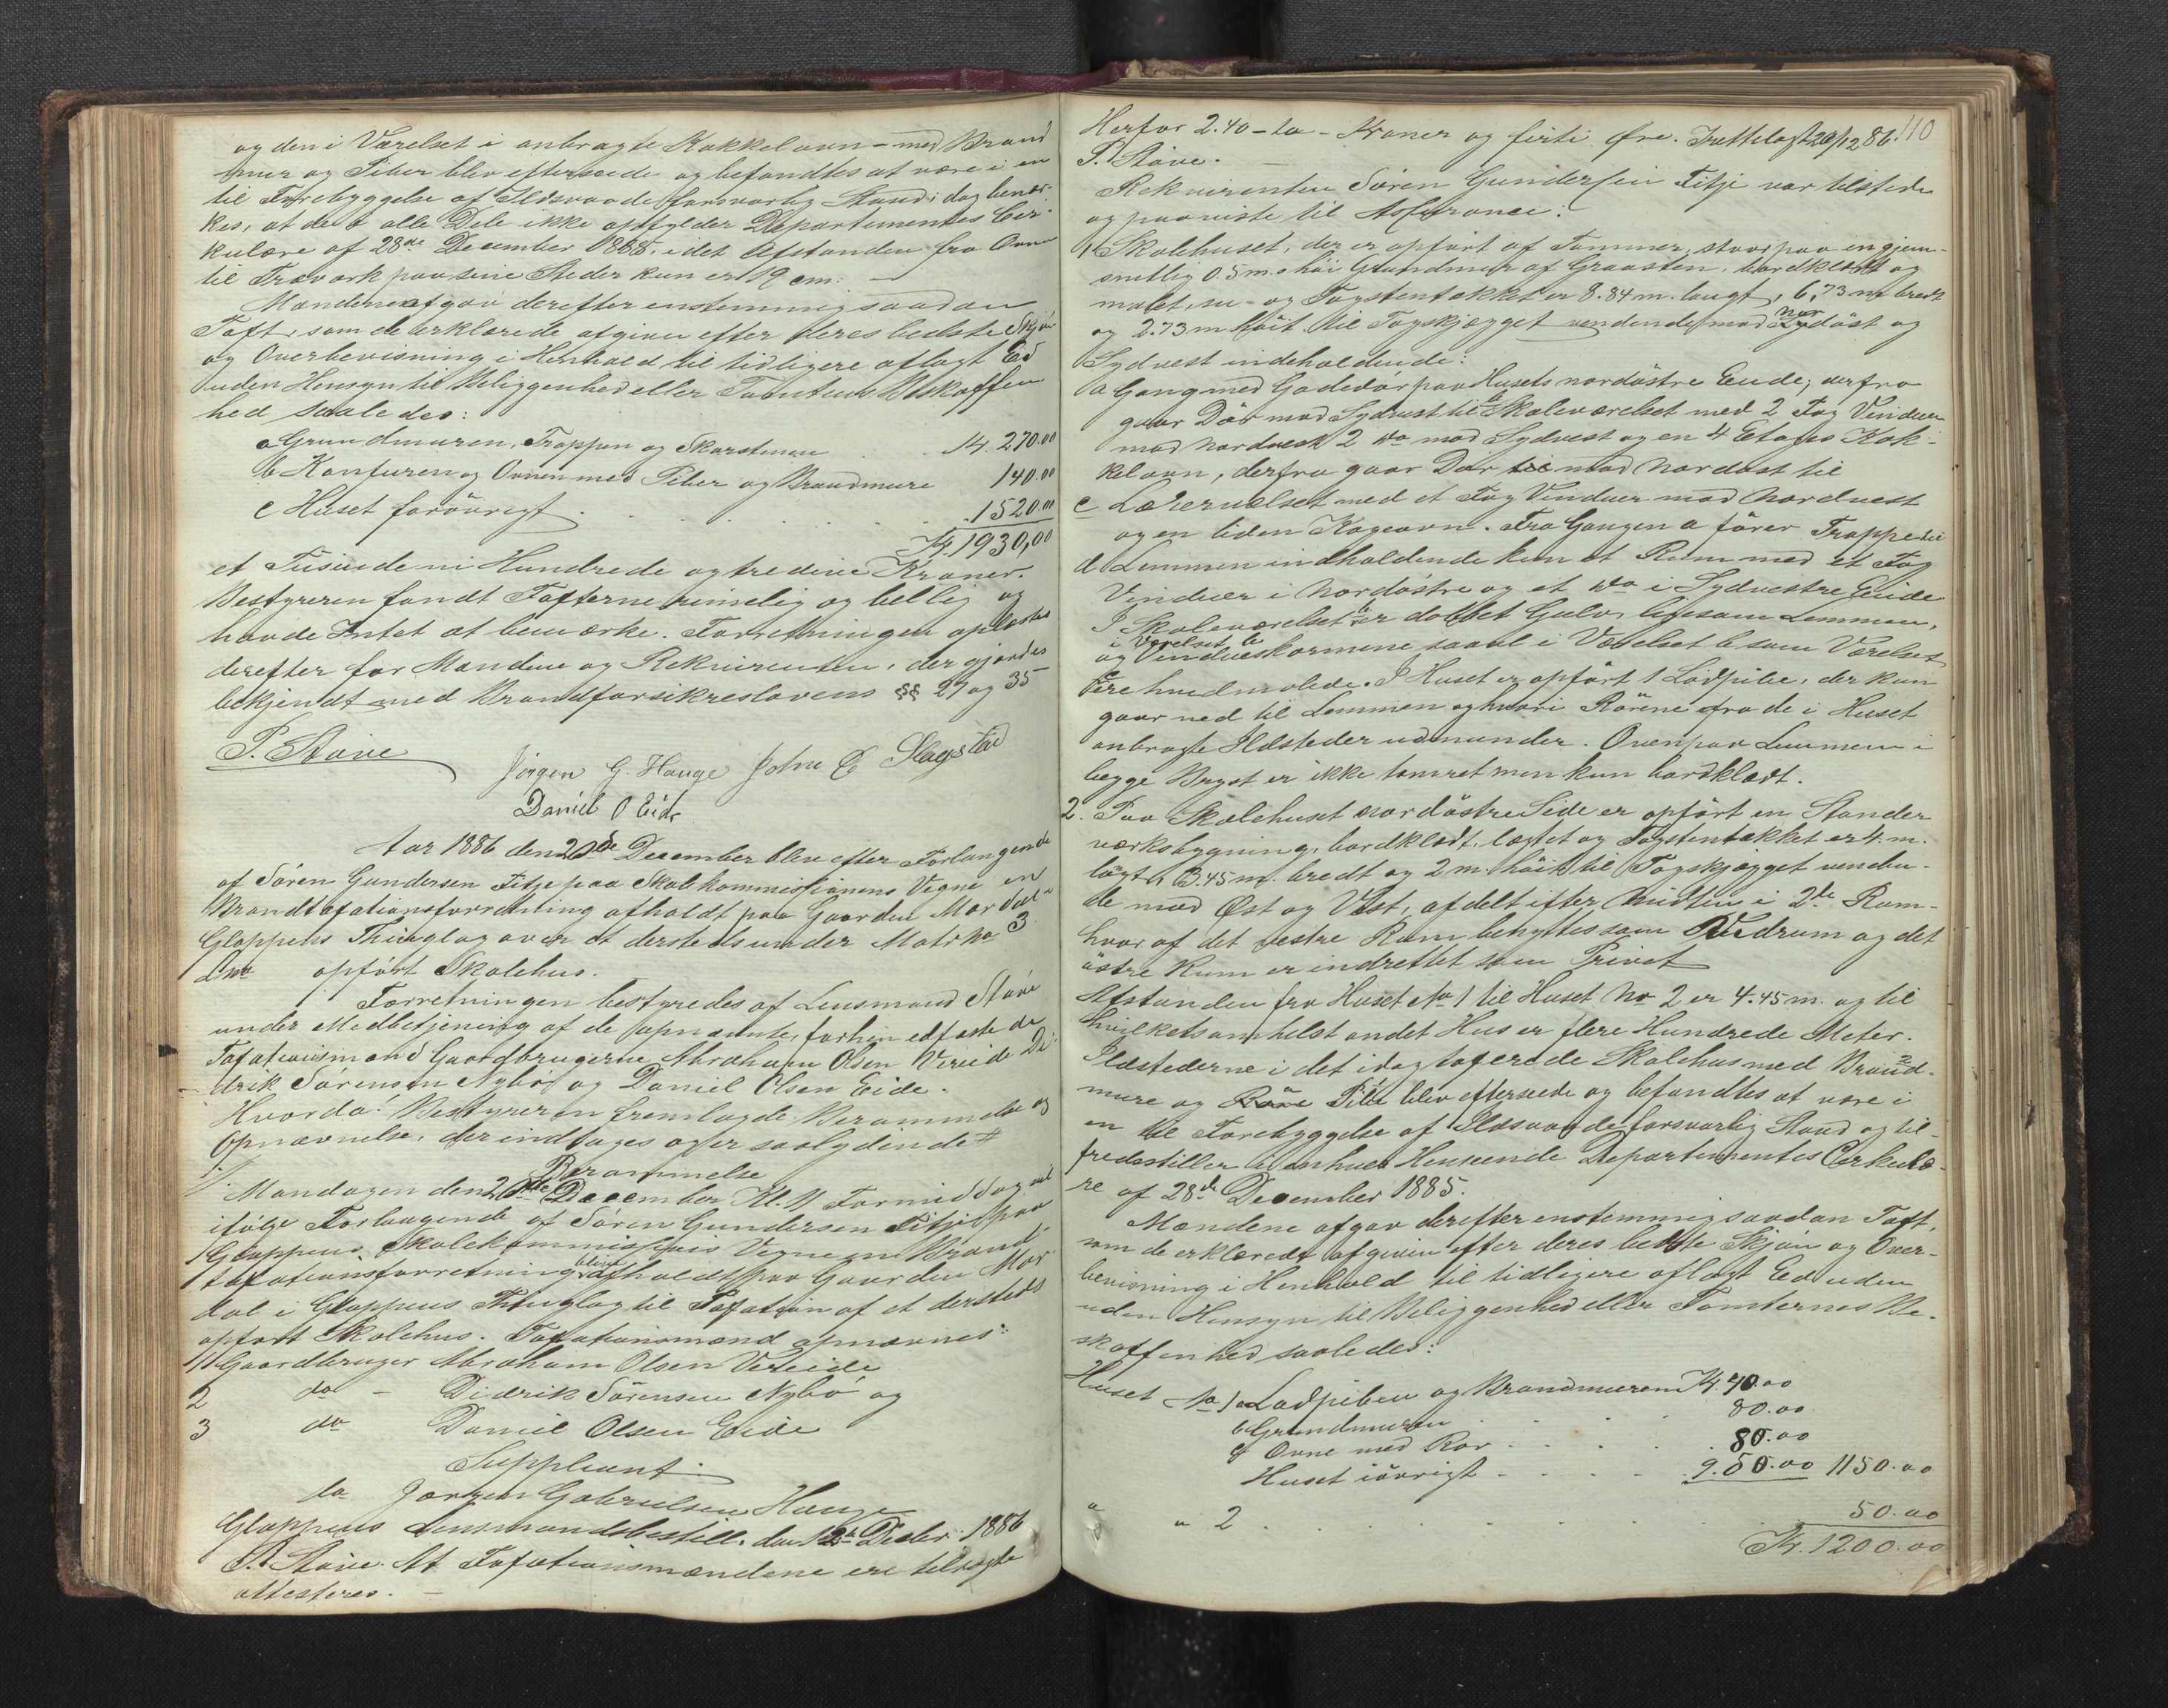 og den i Værelset i anbragte Kakkelovn med Brand
mur og Piber blev efterseede og befandtes at være i en
til Forebyggelse af Ildsvaade forsvarlig Stand; dog bemær-
kes, at de i alle Dele ikke opfylder Departementets Cir-
kulære af 28de December 1885, idet Afstanden fra Ovn
til Trævark paa sine Steder kun er 19 cm. —
Mændene afgav derefter enstemmig saadan
Taxt, som de erklærede afgiven efter deres bedste Skjøn
og Overbevisning i Henhold til tidligere aflagt Ed
uden Hensyn til Beliggenhed eller Tomtens Beskaffen
hed saaledes:
a Grundmuren, Trappen og Skorstenen . . Kr. 270.00
b Komfuren og Ovnen med Piber og Brandmure 140.00
c Huset forøvrigt . . . . . . . 1520.00
Kr. 1930,00
et Tusinde ni Hundrede og tredive Kroner.
Bestyreren fandt Taxterne rimelig og billig og
havde Intet at bemærke. Forretningen oplæstes
derefter for Mændene og Rekvirenten, der gjordes
bekjendt med Brandforsikreslovens §§ 27 og 35
P. Støve
Jørgen G. Hauge John E Slagstad
Daniel O Eide
Aar 1886 den 20de December blev efter Forlangende
af Søren Gundersen Fitje paa Skolekommissionens Vegne en
Brandtaxationsforretning afholdt paa Gaarden Mardal
Gloppens Thinglag over et dersteds under Matr No 3
Lno opført Skolehus.
Forretningen bestyredes af Lensmand Støve
under Medbetjening af de opnævnte, forhen edfæstede
Taxationsmænd Gaardbrugerne Abraham Olsen Vereide Di-
drik Sørensen Nybø og Daniel Olsen Eide.
Hvorda! Bestyreren fremlagde Berammelse og
Opnævnelse, der indtages og er saalydende #
Berammelse
Mandagen den 20de December Kl. 11 Formiddag vil
ifølge Forlangende af Søren Gundersen Fitje paa
Gloppens Skolekommissions Vegne en Brand
taxationsforretning blive afholdt paa Gaarden Mar
dal i Gloppens Thinglag til Taxation af et dersteds
opført Skolehus. Taxationsmænd opnævnes:
1 Gaardbruger Abraham Olsen Vereide
2 do — Didrik Sørensen Nybø og
3 do Daniel Olsen Eide
Suppleant:
do Jørgen Gabrielsen Hauge
Gloppens Lensmandsbestill. den 12te Decbr. 1886
P. Støve. At Taxationsmændene ere tilsagte
attesteres. —
110
Herfor 2.40 - to - Kroner og firti Øre. Trettelagt 20/12 86.
P. Støve. —
Rekvirenten Søren Gundersen Fitje var tilstede
og paaviste til Assurance:
1 Skolehuset, der er opført af Tømmer, staar paa en gjen-
snitlig 0.5 m. høi Grundmur af Graasten, bordklædt og
malet, su- og Tagstentækket er 8.84 m. langt, 6,73 m bredt
og 2.73 m høit til Tagskjægget vendende mod nordøst og
Sydvest indeholdende:
a Gang med Gadedør paa Husets nordøstre Ende, derfra
gaar Dør mod Sydvest til b Skoleværelset med 2 Fag Vinduer
mod Nordvest 2 do mod Sydvest og en 4 Etages Kak-
kelovn, derfra gaar Dør mod Nordøst til
c Lærerværelset med et Fag Vinduer mod Nordvest
og en liden Kogeovn. Fra Gangen a fører Trappe til
d Lemmen indholdende kun et Rum med et Fag
Vinduer i Nordøstre og et do i Sydvestre Ende
I Skoleværelset er dobbet Gulv, ligesom Lemmen,
i Værelset b
og Vindueskarmene saavel i Værelset b som Værelset
c ere hvidmalede. I Huset er opført 1 Lodpibe, der kun
gaar ned til Lemmen og hvori Rørene fra de i Huset
anbragte Ildsteder udmunder. Ovenpaa Lemmen i
begge Bryst er ikke tømret men kun bordklædt.
2. Paa Skolehuset nordøstre Side er opført en Stander
værksbygning, bordklædt, lægtet og Tagstentækket er 4. m.
langt, 3.45 m. bredt og 2 m. høit til Tagskjægget venden-
de mod Øst og Vest, afdelt efter Midten i 2de Rum-
hvoraf det vestre Rum benyttes som Vedrum og det
østre Rum er indrettet som Privet
Afstanden fra Huset No 1 til Huset No 2 er 4.45 m. og til
hvilketsomhelst andet Hus er flere Hundrede Meter.
Ildstederne i det idag taxerede Skolehus med Brand-
mure og Pibe blev efterseede og befandtes at være i
en til Forebyggelse af Ildsvaade forsvarlig Stand og til-
fredsstiller i enhver Henseende Departementets Cirkulæ-
re af 28de December 1885.
Mændene afgav derefter enstemmig saadan Taxt,
som de erklærede afgiven efter deres bedste Skjøn og Over-
bevisning i Henhold til tidligere aflagt Ed uden
uden Hensyn til Beliggenhed eller Tomternes Be-
skaffenhed saaledes:
Huset No 1 a Lodpiben og Brandmuren Kr. 40.00
b Grundmuren . . . . 80.00
c Ovne med Rør . . . . 80.00
Huset iøvrigt . . . . 950.00 1150.00
" " 2 . . . . . . . . 50.00
Kr. 1200.00